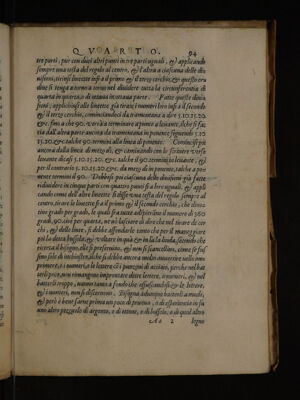 QVARTO. 94
tre parti, pur con dieci altri punti in tre parti uguali, & applicando
sempre una testa del regolo al centro, & l'altra a ciascuna delle di-
uisioni, tirinsi linette infra il primo & il terzo cerchio, & questo or-
dine si tenga a torno a torno nel diuidere tutta la circunferentia di
quarta in quarta, o di ottaua in ottaua parte. Fatte queste diui-
sioni, applichinsi alle linette gia tirate, i numeri loro infra il secondo
& il terzo cerchio, cominciandoci da tramontana a dire 5.10.15.20.
&c. fino a che 90. uerrà a terminare a ponente a leuante, il che si fac-
cia dall'altra parte ancora da tramontana in ponente seguendo 5.10
15.20. &c. talche 90. termini alla linea di ponente. Cominciisi poi
ancora dalla linea di mezo dì, & cominciando con lo scriuere uerso
leuante dicasi 5.10.15.20. &c. talche il 90. termini in leuante, &
per il contrario 5.10.15.20. &c. da mezo dì in ponente, talche a pone
te termini il 90. Debbesi poi ciascuna delle diuisioni gia fatte
ridiuidere in cinque parti con quattro punti fra loro uguali, & appli
cando come dell'altre linette si disse una testa del regolo sempre al
centro, tirare le linette fra il primo & il secondo cerchio, che dimo-
strino gradi per gradi, le quali fra tutte ascendino al numero di 360
gradi, 90. cioe per quarta, ne ci lasciare di dire che nel tirare de cer-
chi, & delle linee, si debbe affondarle tanto che per il maneggiare
poi lo detto bussolo, & uoltare in qua & in la la linda, secondo che
ricerca il bisogno, alle si preseruino, & non si scancellino, come se fus
sino solo di inchiostro, il che si debbe ancora molto auuertire nello im-
primere, o i numeri, o le lettere con i punzoni di acciaio, perche nel bat
terli poi, non rimanghino impronte dette lettere, o numeri, & nel
batterli troppo, uanno tanto a fondo che offuschino le lettere,
& i numeri, non si discernono. Bisogna adunque batterli a modo,
& però è bene farne prima un poco di pruoua, o di esperientia in su
uno altro pezzuolo di argento, o di ottone, o di bossolo, o di quel altro
Aa 2 legno